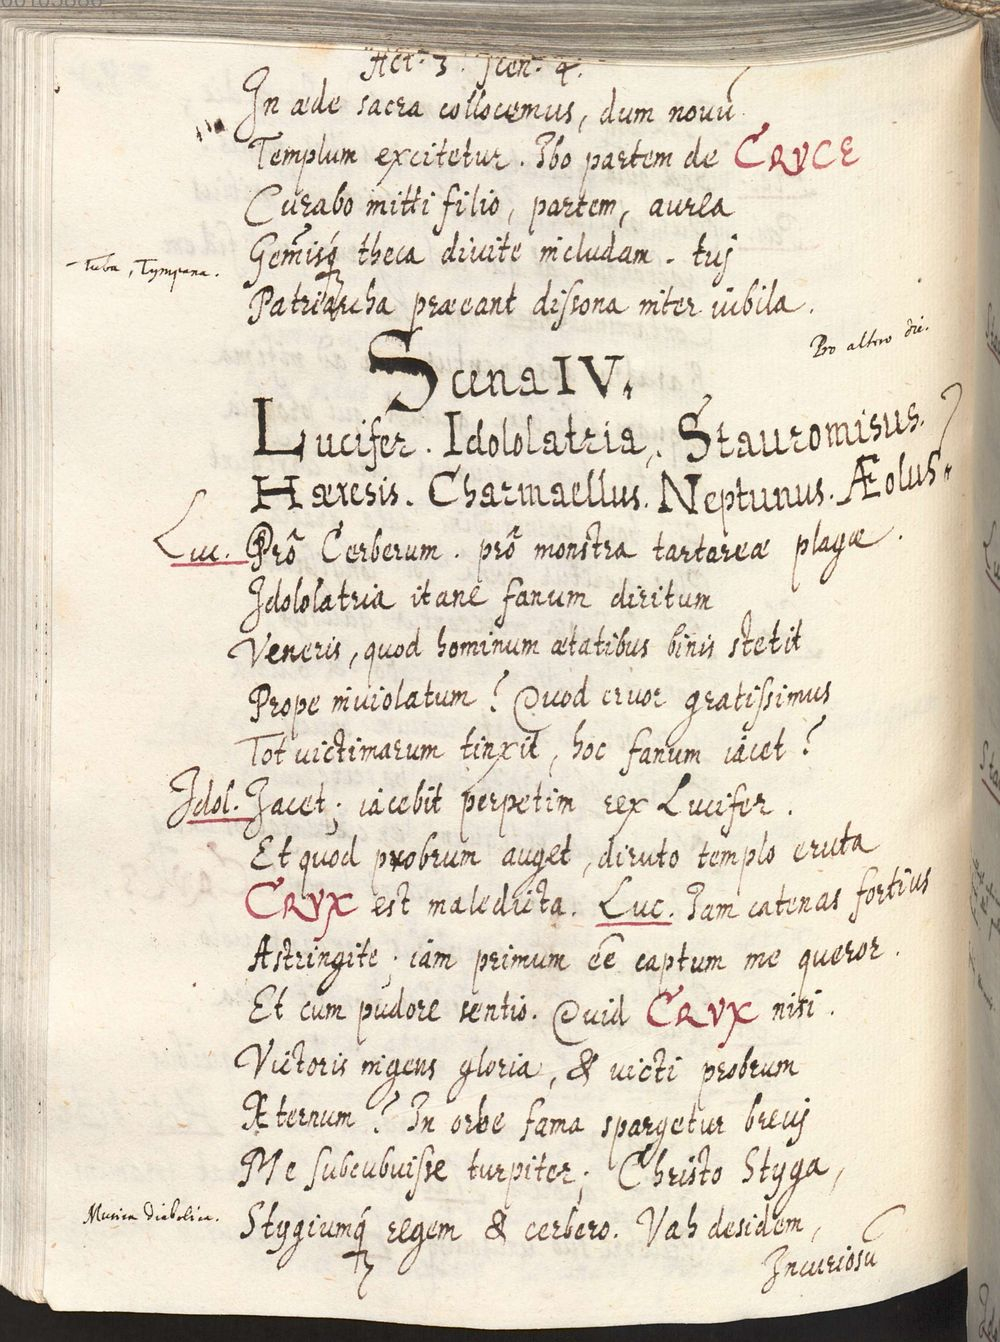 Act. 3. Scen. 4.
In æde sacra collocemus, dum novū
Templum excitetur. Ibo partem de CRVCE
Curabo mitti filio, partem, aurea
Gem̄isq́ theca divite includam. tuj
Tuba, Tympana.
Patriarcha præeant dissona inter iubila.
Pro altero die.
Scena IV.
Lucifer. Idololatria. Stauromisus.
Hæresis. Charmaellus. Neptunus. Æolus.
Luc. Prô Cerberum. prô monstra tartareæ plagæ.
Idololatria itane fanum dirutum
Veneris, quod hominum ætatibus binis stetit
Prope inviolatum? Quod cruor gratissimus
Tot victimarum tinxit, hoc fanum iacet?
Idol. Jacet; iacebit perpetim rex Lucifer.
Et quod probrum auget, diruto templo eruta
CRVX est maledicta. Luc. Iam catenas fortius
Astringite; iam primum eē captum me queror.
Et cum pudore sentio. Quid CRVX nisi.
Victoris ingens gloria, & victi probrum
Æternum? In orbe fama spargetur brevj
Me subcubuisse turpiter; Christo Styga,
Musica Diabolica.
Stygiumq́ regem & cerbero. Vah desidem,
Incuriosū